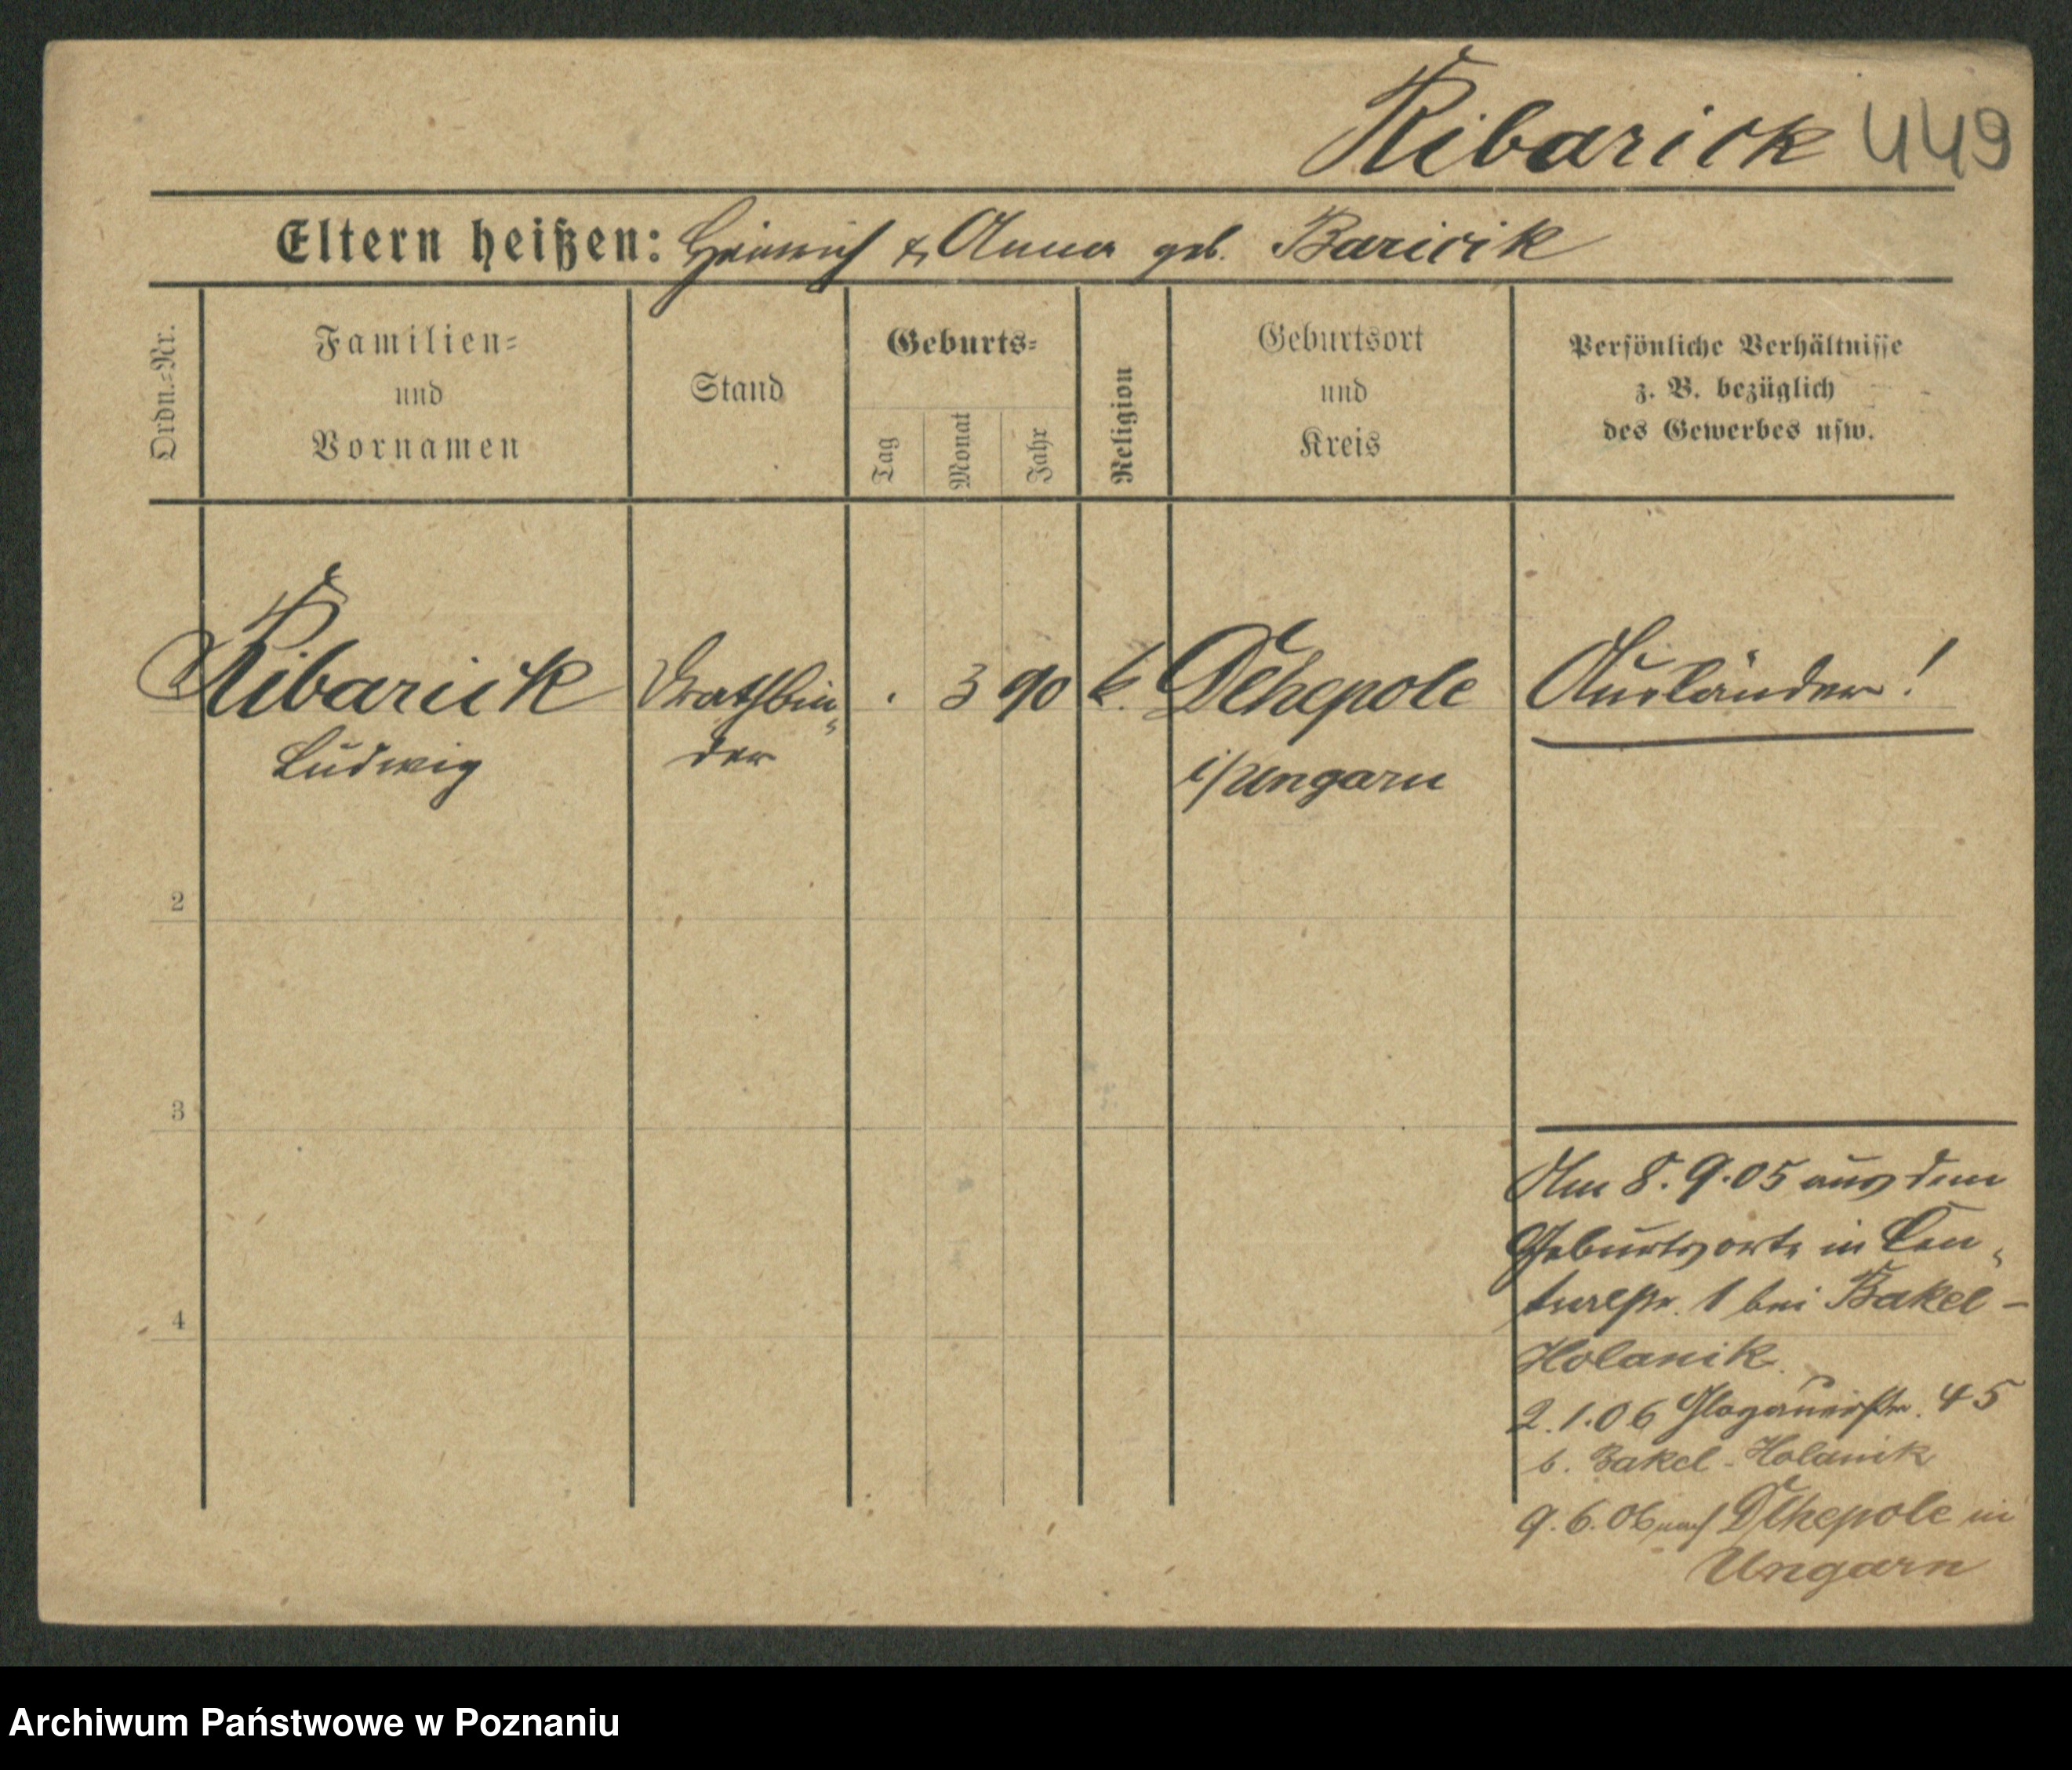 Ribarick 449
Eltern heißen: Heinrich & Anna geb. Baricik
Ordn.-Nr.
Familien-
und
Vornamen
Stand
Geburts-
Tag
Monat
Jahr
Religion
Geburtsort
und
Kreis
Persönliche Verhältnisse
z. B. bezüglich
des Gewerbes usw.
Ribarick Drathbin- . 3 90 k. Dlhepole Ausländer!
Ludwig der i/Ungarn
2
3
4
Am 8.9.05 aus dem
Geburtsorte in Cen-
tralstr. 1 bei Bakel-
Holanik.
2.1.06 Glogauerstr. 45
b. Bakel-Holanik
9.6.06 nach Dlhepole in
Ungarn
Archiwum Państwowe w Poznaniu